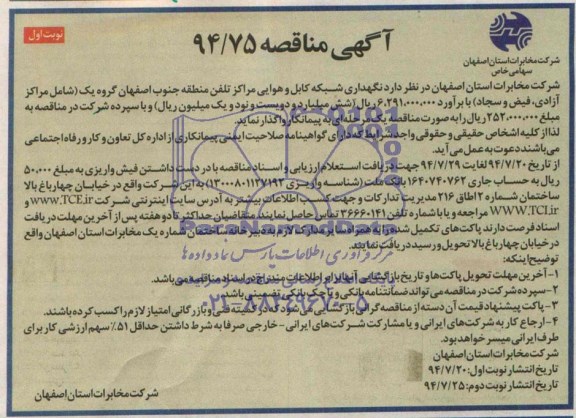 نوبت اول
آگهی مناقصه ۹۴/۷۵
شرکت مخابرات استان اصفهان
سهامی خاص
شرکت مخابرات استان اصفهان در نظر دارد نگهداری شبکه کابل و هوایی مراکز تلفن منطقه جنوب اصفهان گروه یک (شامل مراکز
آزادی، فیض و سجاد) با برآورد ۶،۲۹۱،۰۰۰،۰۰۰ ریال (شش میلیارد و دویست و نود و یک میلیون ریال) و با سپرده شرکت در مناقصه به
مبلغ ۲۵۲،۰۰۰،۰۰۰ ریال را به صورت مناقصه یک مرحله‌ای به پیمانکار واگذار نماید.
لذا از کلیه اشخاص حقیقی و حقوقی واجد شرایط که دارای گواهینامه صلاحیت ایمنی پیمانکاری از اداره کل تعاون و کار و رفاه اجتماعی
می‌باشند دعوت به عمل می آید.
از تاریخ ۹۴/۷/۲۰ لغایت ۹۴/۷/۲۹ جهت دریافت استعلام ارزیابی و اسناد مناقصه با در دست داشتن فیش واریزی به مبلغ ۵۰،۰۰۰
ریال به حساب جاری ۱۶۴۰۷۴۰۷۶۲ بانک ملت (شناسه واریزی ۱۳۰۰۰۸۰۱۱۳۷۱۹۲) به این شرکت واقع در خیابان چهارباغ بالا
ساختمان شماره ۲ اطاق ۲۱۶ مدیریت تدارکات و جهت کسب اطلاعات بیشتر به آدرس سایت اینترنتی شرکت www.TCE.ir و
WWW.TCI.ir مراجعه و یا با شماره تلفن ۳۶۶۶۰۱۴۱ تماس حاصل نمایند. متقاضیان حداکثر تا دو هفته پس از آخرین مهلت دریافت
اسناد فرصت دارند پاکت‌های تکمیل شده را به همراه اسناد و مدارک لازم به دبیرخانه ساختمان شماره یک استان اصفهان واقع
در خیابان چهارباغ بالا تحویل و رسید دریافت نمایند.
توضیح اینکه:
۱- آخرین مهلت تحویل پاکت‌ها و تاریخ بازگشایی آنها برابر اطلاعات مندرج در اسناد مناقصه می باشد.
۲- سپرده شرکت در مناقصه می تواند ضمانتنامه بانکی و یا چک بانکی تضمینی باشد.
۳- پاکت پیشنهاد قیمت آن دسته از مناقصه گران بازگشایی می شود که در کمیته فنی و بازرگانی امتیاز لازم را کسب کرده باشند.
۴- ارجاع کار به شرکت‌های ایرانی و یا مشارکت شرکت‌های ایرانی - خارجی صرفا به شرط داشتن حداقل ۵۱٪ سهم ارزشی کار برای
طرف ایرانی میسر خواهد بود.
شرکت مخابرات استان اصفهان
تاریخ انتشار نوبت اول: ۹۴/۷/۲۰
تاریخ انتشار نوبت دوم: ۹۴/۷/۲۵
شرکت مخابرات استان اصفهان
مرکز فرآوری اطلاعات پارس نماد داده ها
۰۲۱-۸۸۳۴۹۶۷۰-۵